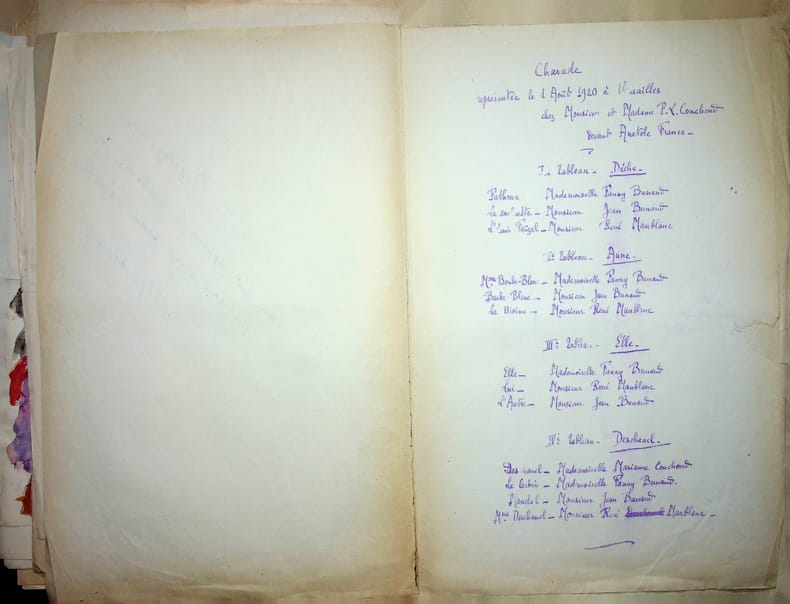 Charade
représentée le 1 Août 1920 à Versailles
chez Monsieur et Madame P-L. Couchoud
devant Anatole France -
I: tableau - Dèche -
Fathma Mademoiselle Fanny Bunand
- Monsieur Jean Bunand
- Monsieur René Maublanc
tableau - Anne -
Mme Barbe-Bleue - Mademoiselle Fanny Bunand
Barbe-Bleue - Monsieur Jean Bunand
Le Moine - Monsieur René Maublanc
III: tableau - Elle -
Elle - Mademoiselle Fanny Bunand
Lui - Monsieur René Maublanc
L'Autre - Monsieur Jean Bunand
IV: tableau - Deschanel -
Deschanel - Mademoiselle Marianne Couchoud
Le - Mademoiselle Fanny Bunand.
Mandel - Monsieur Jean Bunand
Mme Deschanel - Monsieur René Maublanc -